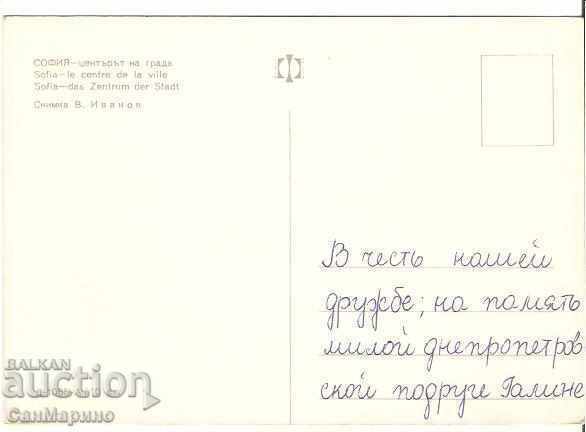 СОФИЯ—центърът на града
Sofia—le centre de la ville
Sofia—das Zentrum der Stadt
Снимка В. Иванов
В честь нашей
дружбе; на память
милой днепропетров
ской подруги Галине
BALKAN
auction
СанМарино